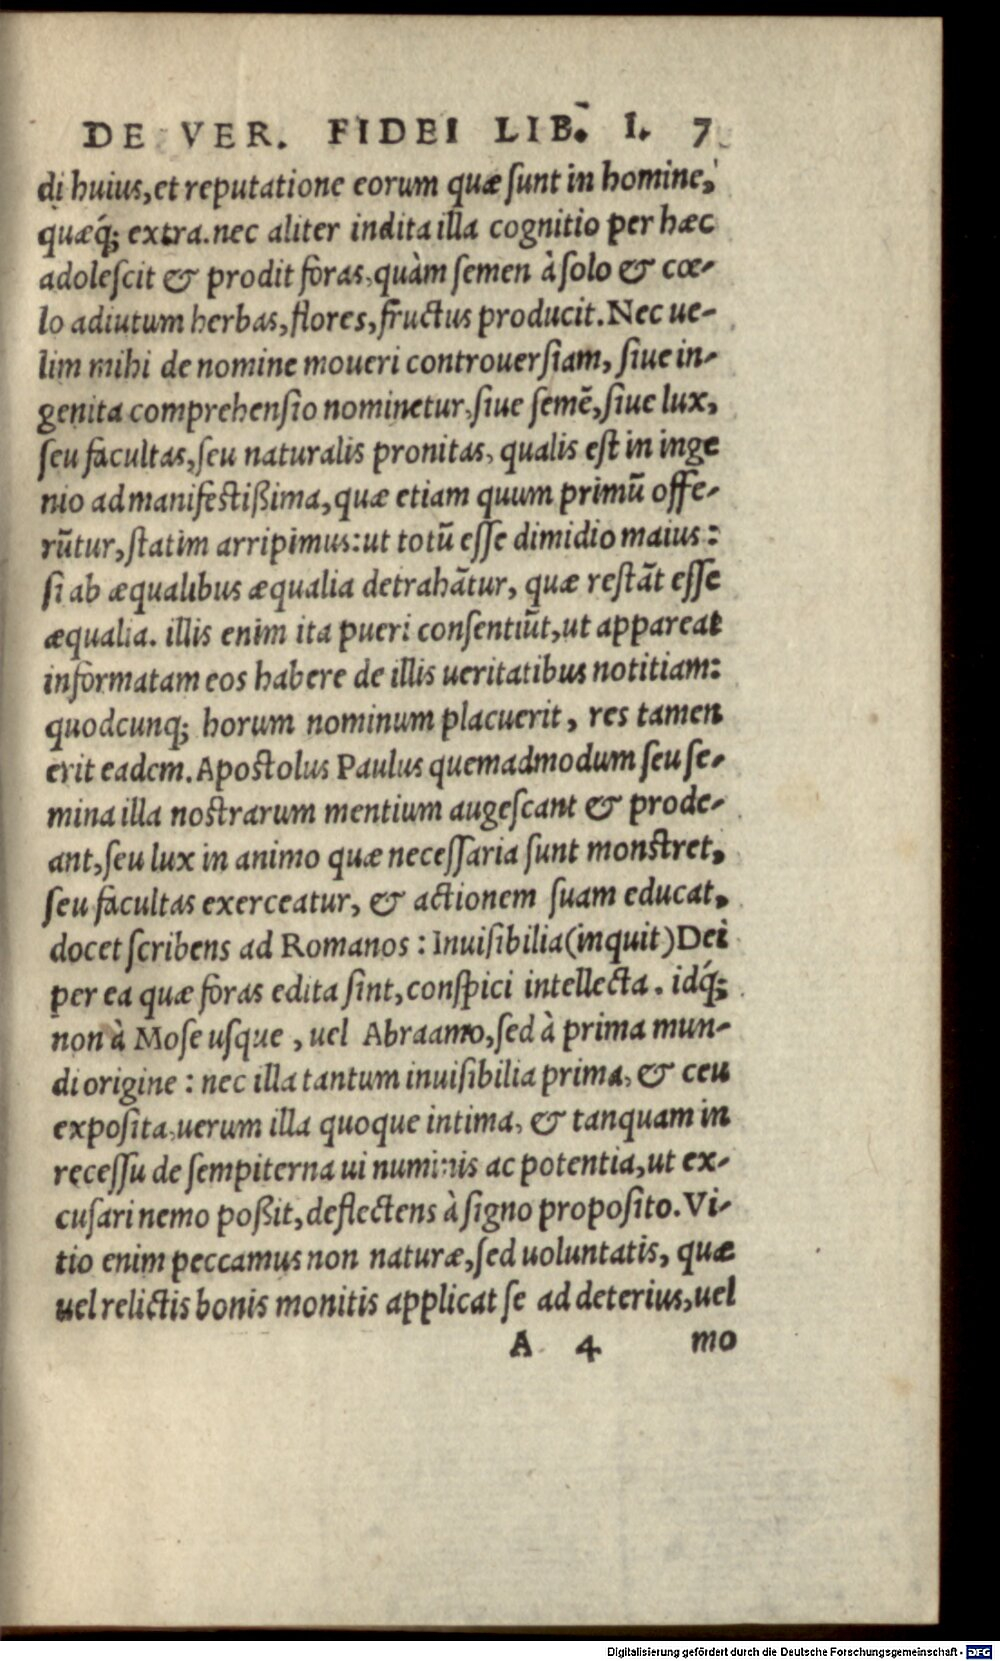 DE VER. FIDEI LIB. I. 7
di huius, et reputatione eorum quæ ſunt in homine,
quæq́; extra. nec aliter indita illa cognitio per hæc
adoleſcit & prodit foras, quàm ſemen à ſolo & cœ-
lo adiutum herbas, flores, fructus producit. Nec ue-
lim mihi de nomine moueri controuerſiam, ſiue in-
genita comprehenſio nominetur, ſiue ſemē, ſiue lux,
ſeu facultas, ſeu naturalis pronitas, qualis eſt in inge
nio ad manifeſtißima, quæ etiam quum primū offe-
rūtur, ſtatim arripimus: ut totū eſſe dimidio maius:
ſi ab æqualibus æqualia detrahātur, quæ reſtāt eſſe
æqualia. illis enim ita pueri conſentiūt, ut appareat
informatam eos habere de illis ueritatibus notitiam:
quodcunq; horum nominum placuerit, res tamen
erit eadem. Apoſtolus Paulus quemadmodum ſeu ſe-
mina illa noſtrarum mentium augeſcant & prode-
ant, ſeu lux in animo quæ neceſſaria ſunt monſtret,
ſeu facultas exerceatur, & actionem ſuam educat,
docet ſcribens ad Romanos: Inuiſibilia (inquit) Dei
per ea quæ foras edita ſint, conſpici intellecta. idq́;
non à Moſe uſque, uel Abraamo, ſed à prima mun-
di origine: nec illa tantum inuiſibilia prima, & ceu
expoſita, uerum illa quoque intima, & tanquam in
receſſu de ſempiterna ui numinis ac potentia, ut ex-
cuſari nemo poßit, deflectens à ſigno propoſito. Vi-
tio enim peccamus non naturæ, ſed uoluntatis, quæ
uel relictis bonis monitis applicat ſe ad deterius, uel
A 4 mo
Digitalisierung gefördert durch die Deutsche Forschungsgemeinschaft - DFG